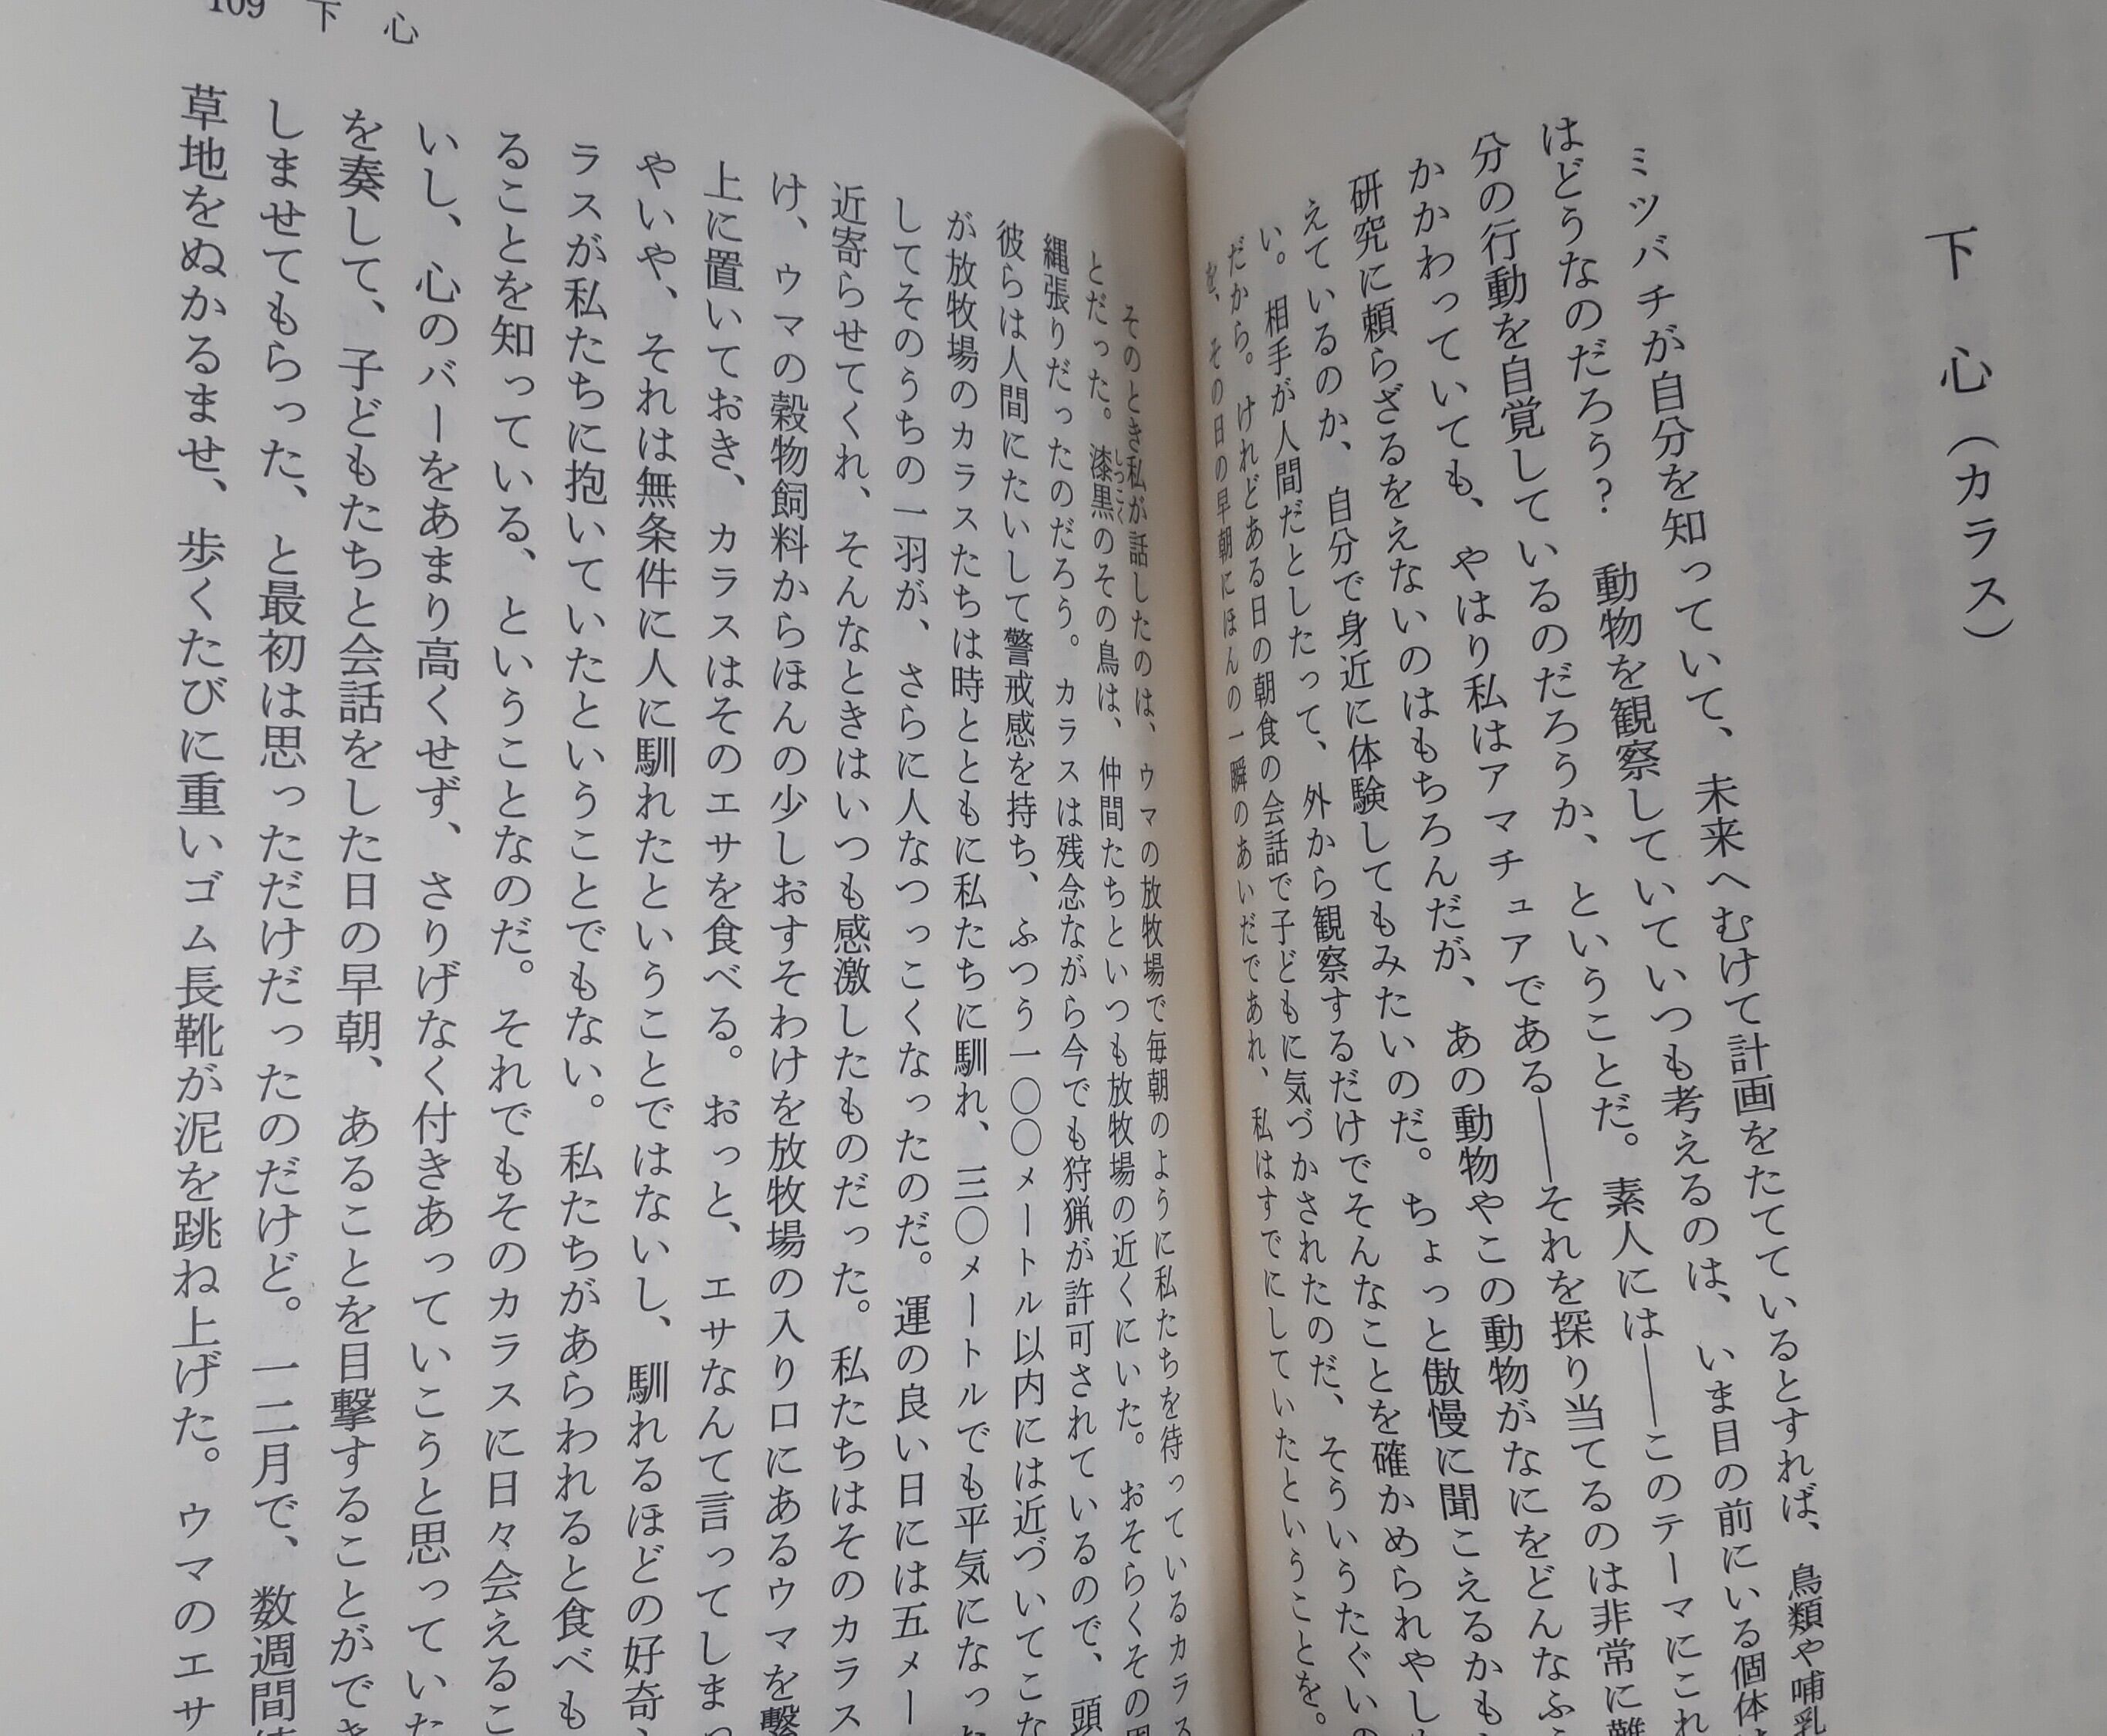 下心（カラス）
ミツバチが自分を知っていて、未来へむけて計画をたてているとすれば、鳥類や哺乳
はどうなのだろう？　動物を観察していていつも考えるのは、いま目の前にいる個体
分の行動を自覚しているのだろうか、ということだ。素人には――このテーマにこれ
かかわっていても、やはり私はアマチュアである――それを探り当てるのは非常に難
研究に頼らざるをえないのはもちろんだが、あの動物やこの動物がなにをどんなふ
えているのか、自分で身近に体験してもみたいのだ。ちょっと傲慢に聞こえるかも
い。相手が人間だとしたって、外から観察するだけでそんなことを確かめられやし
だから。けれどある日の朝食の会話で子どもに気づかされたのだ、そういうたぐいの
を、その日の早朝にほんの一瞬のあいだであれ、私はすでにしていたということを。
そのとき私が話したのは、ウマの放牧場で毎朝のように私たちを待っているカラス
とだった。漆黒のその鳥は、仲間たちといつも放牧場の近くにいた。おそらくその周
しっこく
縄張りだったのだろう。カラスは残念ながら今でも狩猟が許可されているので、頭
彼らは人間にたいして警戒感を持ち、ふつう一〇〇メートル以内には近づいてこな
が放牧場のカラスたちは時とともに私たちに馴れ、三〇メートルでも平気になった
してそのうちの一羽が、さらに人なつっこくなったのだ。運の良い日には五メー
近寄らせてくれ、そんなときはいつも感激したものだった。私たちはそのカラス
け、ウマの穀物飼料からほんの少しおすそわけを放牧場の入り口にあるウマを繫
上に置いておき、カラスはそのエサを食べる。おっと、エサなんて言ってしまっ
やいや、それは無条件に人に馴れたということではないし、馴れるほどの好奇
ラスが私たちに抱いていたということでもない。私たちがあらわれると食べも
ることを知っている、ということなのだ。それでもそのカラスに日々会えるこ
いし、心のバーをあまり高くせず、さりげなく付きあっていこうと思っていた
を奏して、子どもたちと会話をした日の早朝、あることを目撃することができ
しませてもらった、と最初は思っただけだったのだけど。一二月で、数週間
草地をぬかるませ、歩くたびに重いゴム長靴が泥を跳ね上げた。ウマのエサ
109　下心